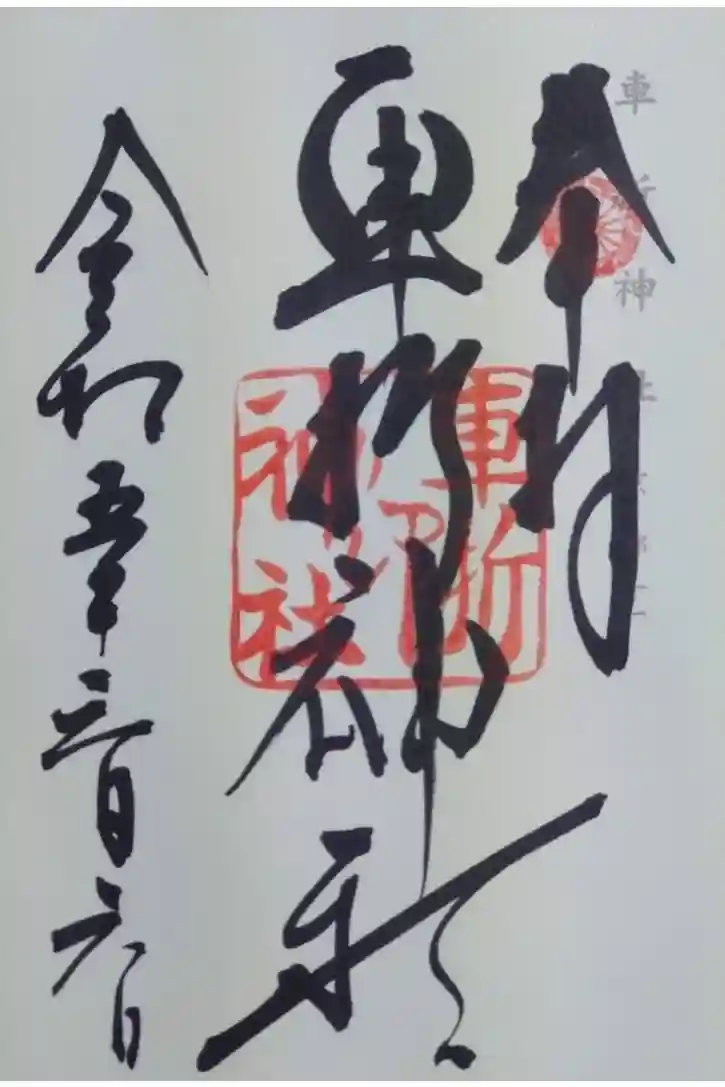 車折神社
奉拝
車折神社
車折神社
令和五年三月六日